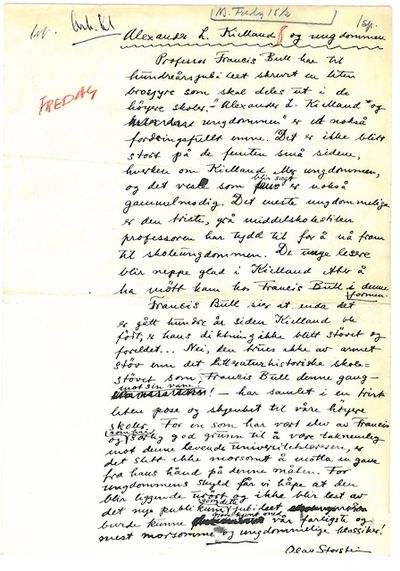 Arb.bl
M. Fredag 18/2
1sp.
FREDAG
Alexander L. Kielland og ungdommen
Professor Francis Bull har til
hundreårsjubileet skrevet en liten
brosjyre som skal deles ut i de
høyere skoler. "Alexander L. Kielland og
ungdommen" er et nokså
fordringsfullt emne. Det er ikke blitt
stort på de femten små sidene,
hverken om Kielland eller ungdommen,
og det vesle som blir sagt er nokså
gammelmodig. Det meste ungdommelige
er den triste, grå middelskolestilen
professoren har tydd til for å nå fram
til skoleungdommen. De unge lesere
blir neppe glad i Kielland etter å
ha møtt ham hos Francis Bull i denne
formen.
Francis Bull sier at enda det
er gått hundre år siden Kielland ble
født, er hans diktning ikke blitt støvet og
foreldet... Nei, den trues ikke av annet
støv enn det litteraturhistoriske skole-
støvet som Francis Bull denne gang –
mot sin vane! – har samlet i en trist
liten pose og skjenket til våre høyere
skoler. For en som har vært elev av Francis
og særlig god grunn til å være takknemlig
mot denne levende universitetslæreren, er
det slett ikke morsomt å motta en gave
fra hans hånd på denne måten. For
ungdommens skyld får vi håpe at den
blir liggende uåpnet og ikke blir lest av
det nye publikum jubileet
burde kunne vår farligste og
mest morsomme og ungdommelige klassiker!
Olav Storstein